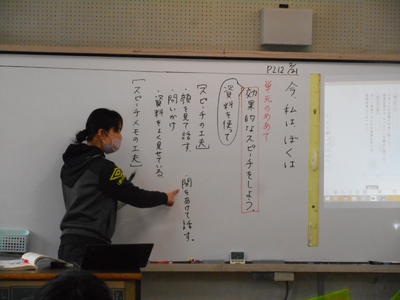 P212 2/21
今、私は、ぼくは
単元のめあて
効果的なスピーチをしよう。
資料を使って
[スピーチの工夫]
・顔を見て話す。
・問いかけ
・資料をよく見せている。
間をあけて話す。
[スピーチメモの工夫]